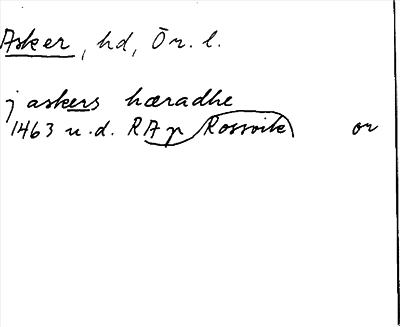 Asker, hd, Ör. l.
j askers hæradhe
1463 u.d. RAp Rossvik or